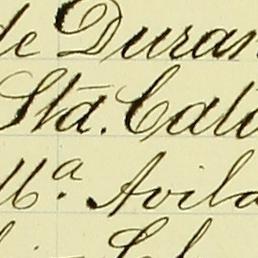 de Duran
Sta. Cat
Ma. Avila